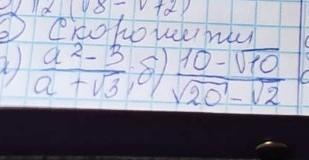 √2 (√8 - √72)
б) Скоротити
а) a² - 3 / a + √3; б) 10 - √10 / √20 - √2